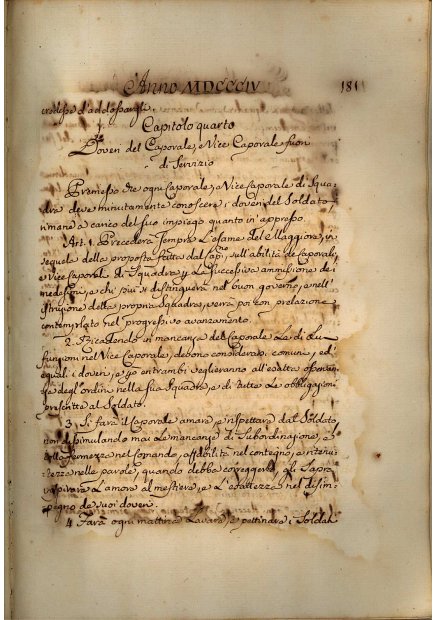 Anno MDCCCIV 181
credesse d'addossargli.
Capitolo quarto
Doveri del Caporale, e Vice Caporale fuori
di Servizio
Premesso che ogni Caporale, e Vice Caporale di Squa=
dra deve minutamente conoscere i doveri del Soldato,
rimane a carico del suo impiego quanto in appresso.
Art. 1. Precederà sempre l'esame del Maggiore, in
sequela della proposta fatta dal sull'abilità de Caporali,
e Vice Caporali di Squadra per la successiva ammissione de
medesimi, e chi più si distinguerà nel buon governo, e nell'
istruzione della propria Squadra, verrà poi con prelazione
contemplato nel progressivo avanzamento.
2. Ricadendo in mancanza del Caporale le di lui
funzioni nel Vice Caporale, debono considerarsi comuni, ed
eguali i doveri, e entrambi veglieranno all'esatta osservan
za degl'ordini nella sua Squadra, e di tutte le obbligazioni
prescritte al Soldato.
3. Si farà il Caporale amare, e rispettare dal Soldato
non dissimulando mai le mancanze di Subordinazione, e
colla fermezza nel comando, affabilità nel contegno, e ritenu
tezza nelle parole, quando debba correggere, gli saprà
inspirare l'amore al mestiere, e l'esattezza nel disim
pegno de suoi doveri.
4. Farà ogni mattina lavare, e pettinare i Soldati